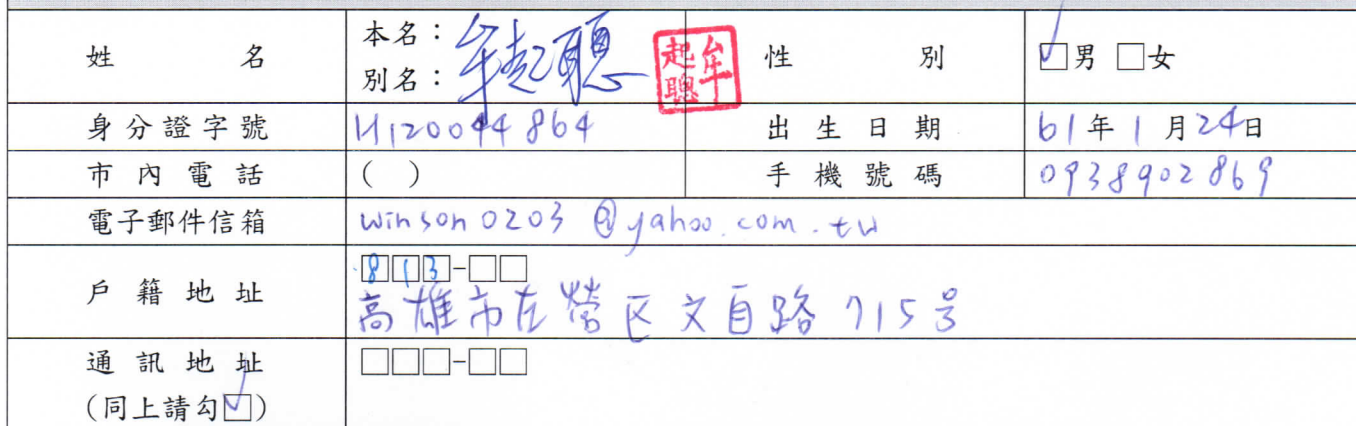 姓名 本名：牟起聰 別名： 牟起聰 性別 ☑男 □女
身分證字號 H120044864 出生日期 61年1月24日
市內電話 ( ) 手機號碼 0938902869
電子郵件信箱 winson0203@yahoo.com.tw
戶籍地址 813-□□
高雄市左營区文自路715号
通訊地址 □□□-□□
(同上請勾☑)